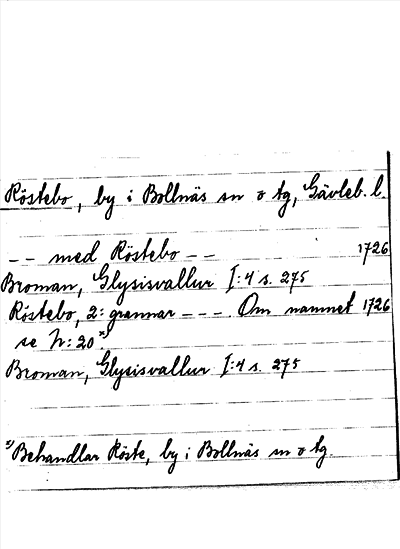 Röstebo, by i Bollnäs sn o tg, Gävleb. l.
-- med Röstebo -- 1726
Broman, Glysisvallur I:4 s. 275
Röstebo, 2: grannar --- . Om namnet 1726
se N: 20 x)
Broman, Glysisvallur I:4 s. 275
x) Behandlar Röste, by i Bollnäs sn o tg.